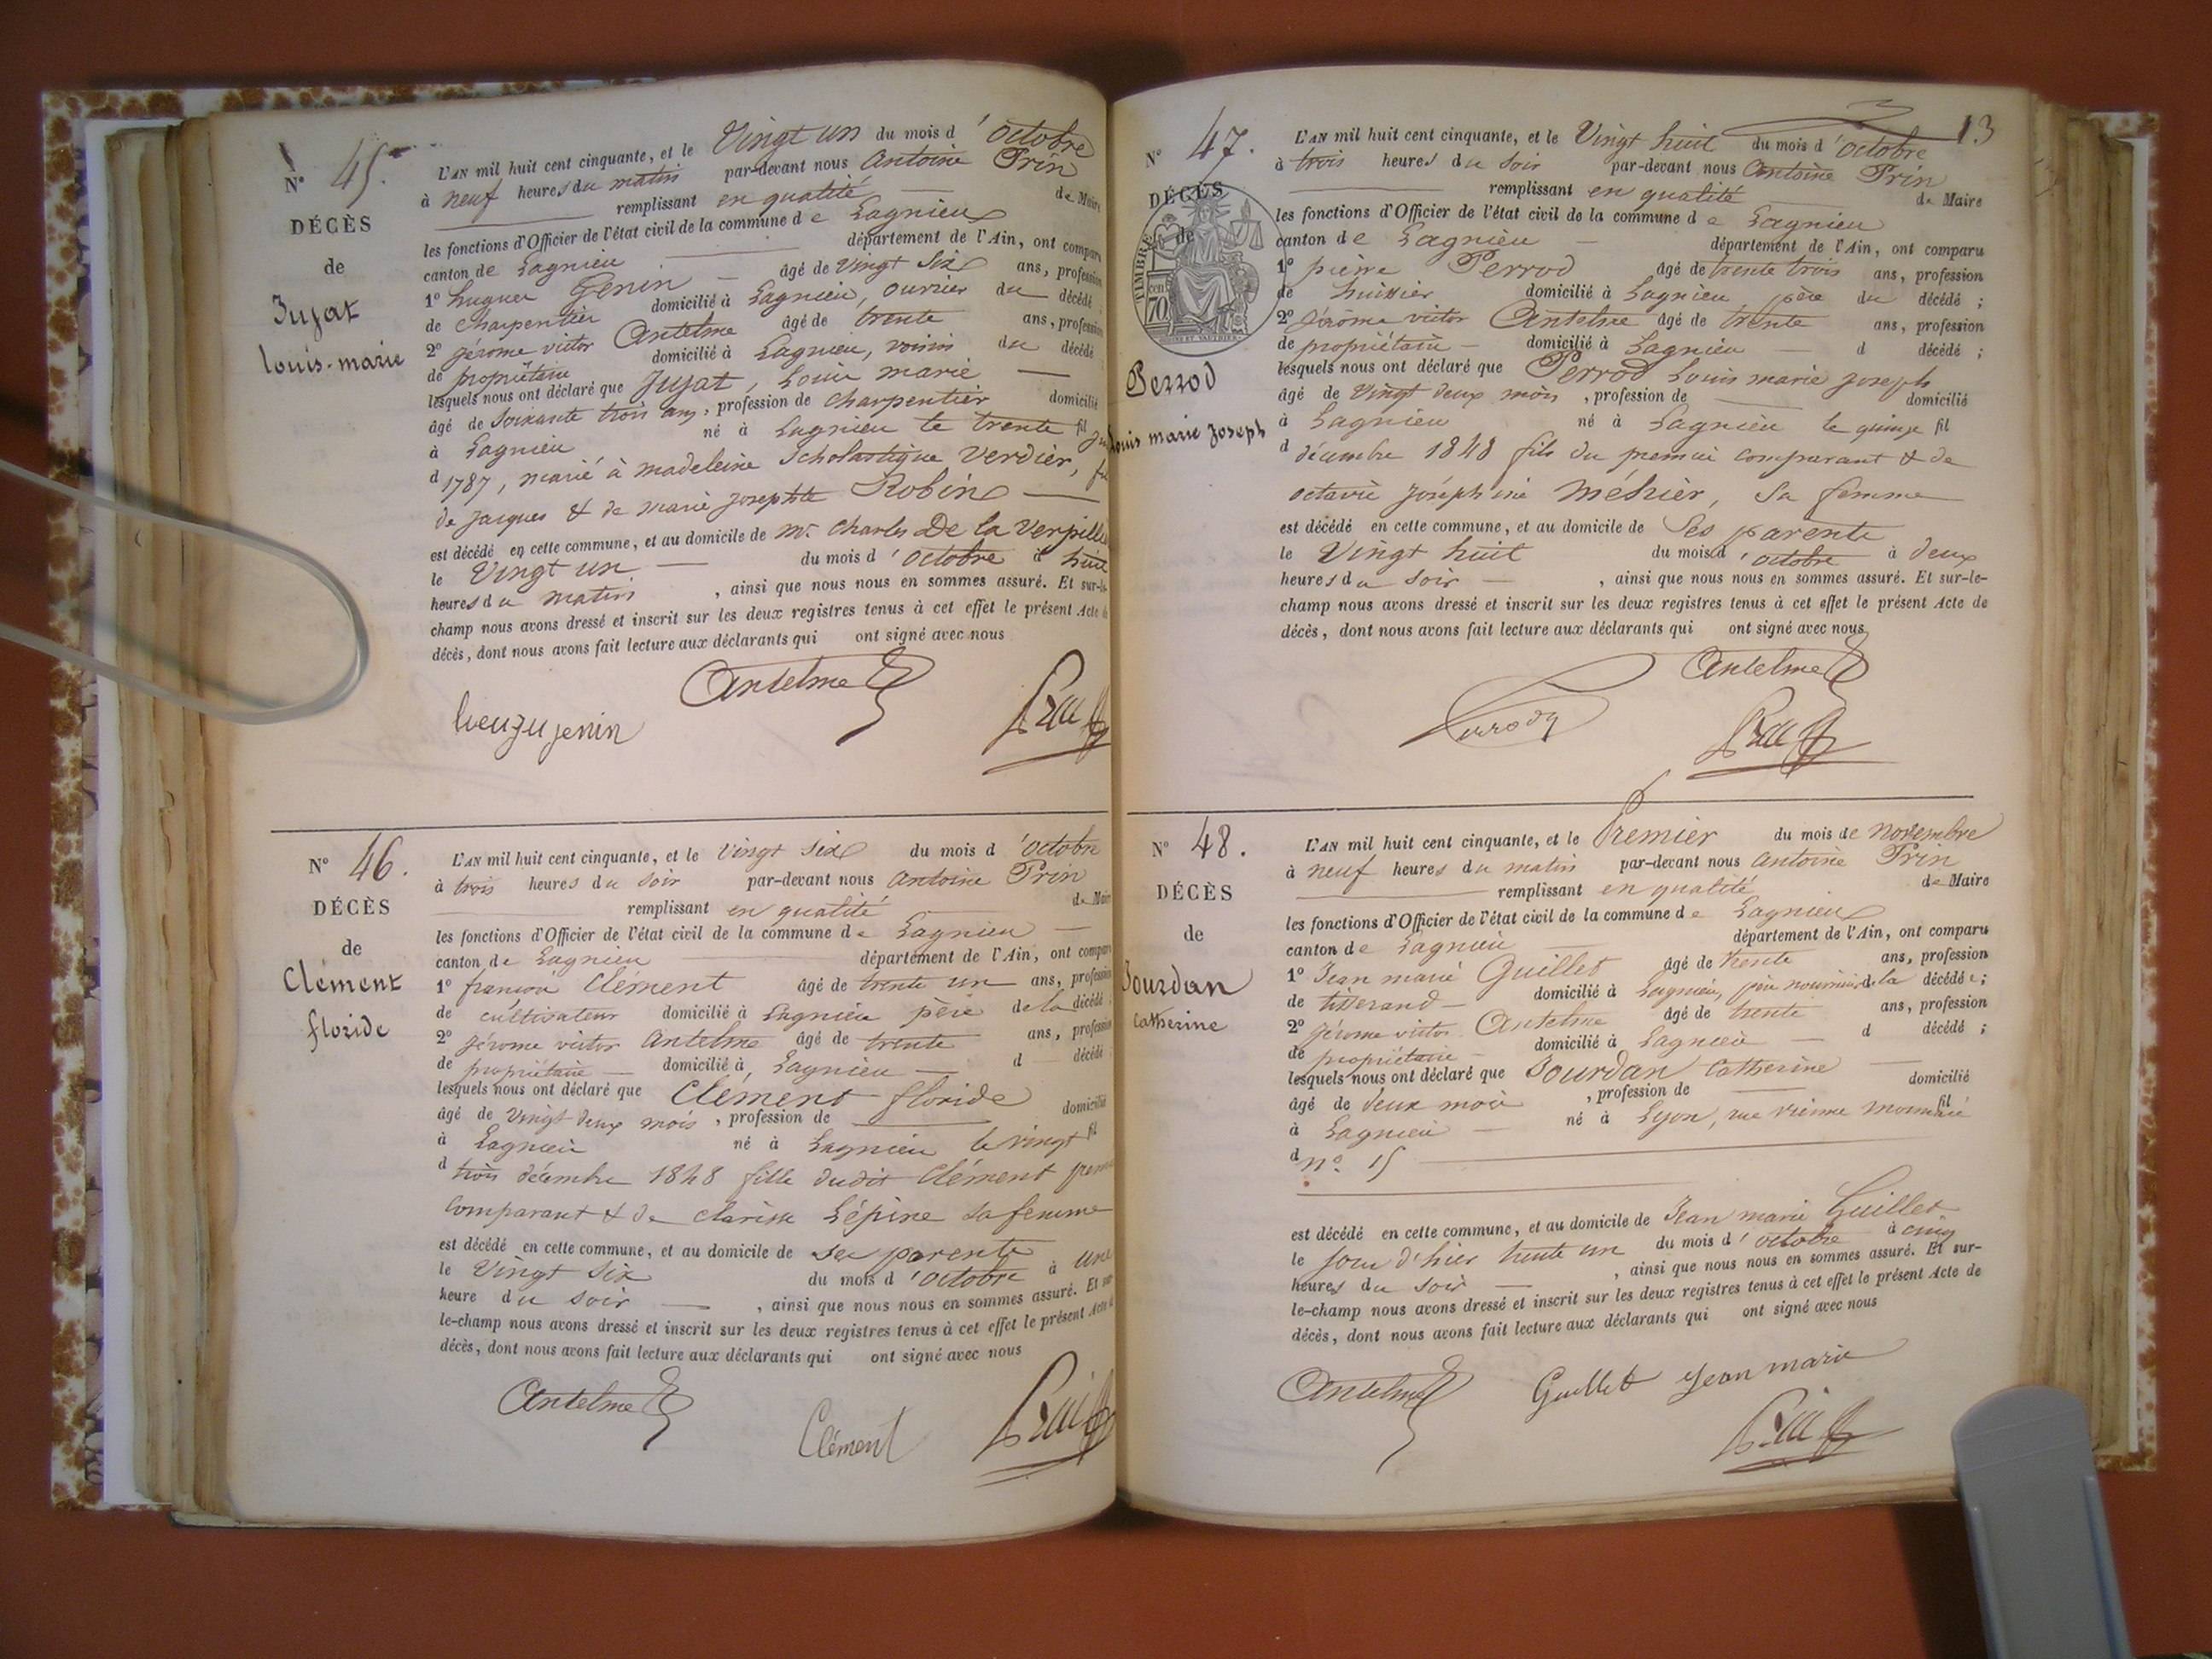 N° 45.
DÉCÈS
de
Jujat
louis-marie
L'AN mil huit cent cinquante, et le Vingt un du mois d'octobre
à neuf heures du matin par-devant nous Antoine Prin
remplissant en qualité de Maire
les fonctions d'Officier de l'état civil de la commune de Lagnieu
canton de Lagnieu département de l'Ain, ont comparu
1° hugues Genin âgé de vingt six ans, profession
de charpentier domicilié à Lagnieu, ouvrier du décédé
2° gérome victor Antelme âgé de trente ans, profession
de propriétaire domicilié à Lagnieu, voisin du décédé
lesquels nous ont déclaré que Jujat, Louis marie
âgé de soixante trois ans, profession de charpentier domicilié
à Lagnieu né à Lagnieu le trente fil
d 1787, marié à madeleine Scholastique Verdier,
de jacques & de marie josephte Robin
est décédé en cette commune, et au domicile de Mr. charles De la Verpille
le Vingt un du mois d'octobre à huit
heures du matin, ainsi que nous nous en sommes assuré. Et sur-le-
champ nous avons dressé et inscrit sur les deux registres tenus à cet effet le présent Acte de
décès, dont nous avons fait lecture aux déclarants qui ont signé avec nous
Antelme
N° 46.
DÉCÈS
de
Clément
floride
L'AN mil huit cent cinquante, et le vingt six du mois d'octobre
à trois heures du soir par-devant nous Antoine Prin
remplissant en qualité de Maire
les fonctions d'Officier de l'état civil de la commune de Lagnieu
canton de Lagnieu département de l'Ain, ont comparu
1° françois Clément âgé de trente un ans, profession
de cultivateur domicilié à Lagnieu père de la décédé
2° gérome victor Antelme âgé de trente ans, profession
de propriétaire domicilié à Lagnieu d décédé
lesquels nous ont déclaré que Clément floride
âgé de vingt deux mois, profession de domicilié
à Lagnieu né à Lagnieu le vingt fil
d trois décembre 1848 fille dudit Clément premier
comparant & de clarisse Lépine sa femme
est décédé en cette commune, et au domicile de ses parents
le Vingt six du mois d'octobre à une
heure du soir, ainsi que nous nous en sommes assuré. Et sur-
le-champ nous avons dressé et inscrit sur les deux registres tenus à cet effet le présent Acte de
décès, dont nous avons fait lecture aux déclarants qui ont signé avec nous
Antelme
Clément
13
N° 47.
DÉCÈS
de
TIMBRE
70 cen
Perrod
louis marie joseph
L'AN mil huit cent cinquante, et le Vingt huit du mois d'octobre
à trois heures du soir par-devant nous Antoine Prin
remplissant en qualité de Maire
les fonctions d'Officier de l'état civil de la commune de Lagnieu
canton de Lagnieu département de l'Ain, ont comparu
1° pierre Perrod âgé de trente trois ans, profession
de huissier domicilié à Lagnieu, père du décédé;
2° gérôme victor Antelme âgé de trente ans, profession
de propriétaire domicilié à Lagnieu d décédé;
lesquels nous ont déclaré que Perrod Louis marie joseph
âgé de vingt deux mois, profession de domicilié
à Lagnieu né à Lagnieu le quinze fil
d décembre 1848 fils du premier comparant & de
octavie joséphine Méhier, sa femme
est décédé en cette commune, et au domicile de ses parents
le Vingt huit du mois d'octobre à deux
heures du soir, ainsi que nous nous en sommes assuré. Et sur-le-
champ nous avons dressé et inscrit sur les deux registres tenus à cet effet le présent Acte de
décès, dont nous avons fait lecture aux déclarants qui ont signé avec nous
Antelme
Perrod
N° 48.
DÉCÈS
de
Jourdan
Catherine
L'AN mil huit cent cinquante, et le Premier du mois de novembre
à neuf heures du matin par-devant nous Antoine Prin
remplissant en qualité de Maire
les fonctions d'Officier de l'état civil de la commune de Lagnieu
canton de Lagnieu département de l'Ain, ont comparu
1° Jean marie Guillet âgé de trente ans, profession
de tisserand domicilié à Lagnieu, père nourricier de la décédée;
2° gérome victor Antelme âgé de trente ans, profession
de propriétaire domicilié à Lagnieu d décédé;
lesquels nous ont déclaré que Jourdan Catherine
âgé de deux mois, profession de domicilié
à Lagnieu né à Lyon, rue vieille monnaie fil
d n° 15
est décédé en cette commune, et au domicile de Jean marie Guillet
le jour d'hier trente un du mois d'octobre à cinq
heures du soir, ainsi que nous nous en sommes assuré. Et sur-
le-champ nous avons dressé et inscrit sur les deux registres tenus à cet effet le présent Acte de
décès, dont nous avons fait lecture aux déclarants qui ont signé avec nous
Antelme Guillet Jean marie